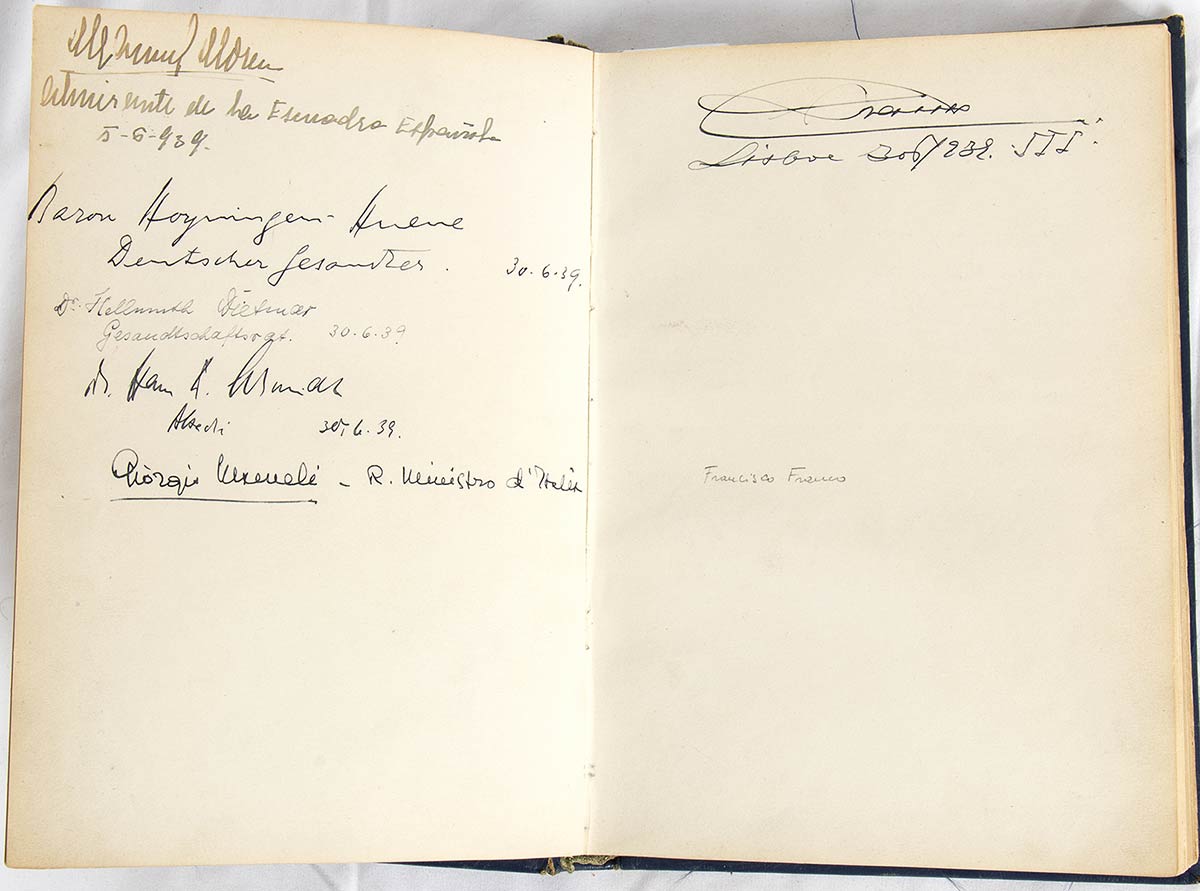 Almirante de la Escuadra Española
5-6-939.
Baron Hoyningen-Huene
Deutscher Gesandter. 30.6.39.
Dr. Hellmuth Dietmar
Gesandtschaftsrat. 30.6.39
Dr. Hans
30.6.39.
Giorgio - R. Ministro d'Italia
Lisboa 30/6/939. III.
Francisco Franco